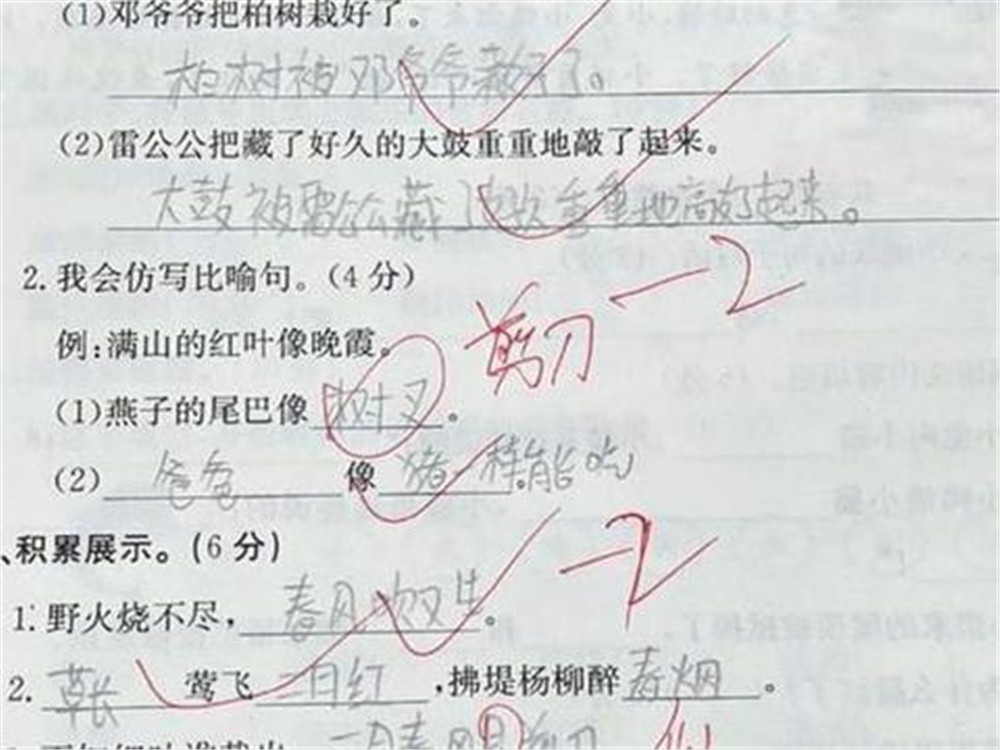 (1)邓爷爷把柏树栽好了。
柏树被邓爷爷栽好了。
(2)雷公公把藏了好久的大鼓重重地敲了起来。
大鼓被雷公公藏了 重重地 起来。
2.我会仿写比喻句。(4分) -2
例:满山的红叶像晚霞。 剪刀
(1)燕子的尾巴像树叉。
(2)爸爸像猪一样能吃
、积累展示。(6分) -2
1.野火烧不尽,春风吹又生。
2.草长莺飞二月红,拂堤杨柳醉春烟。
二月春风 剪刀